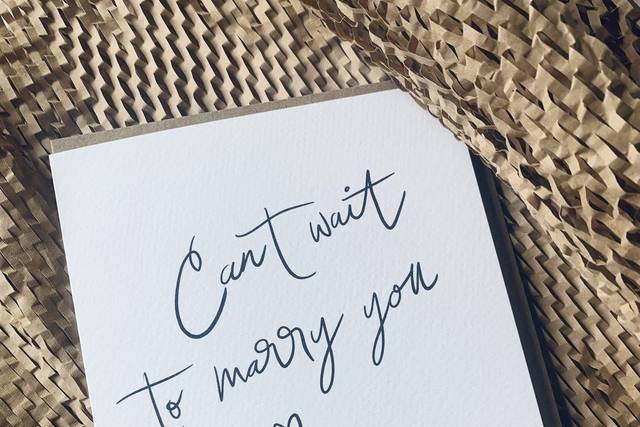 Can't wait
to marry you